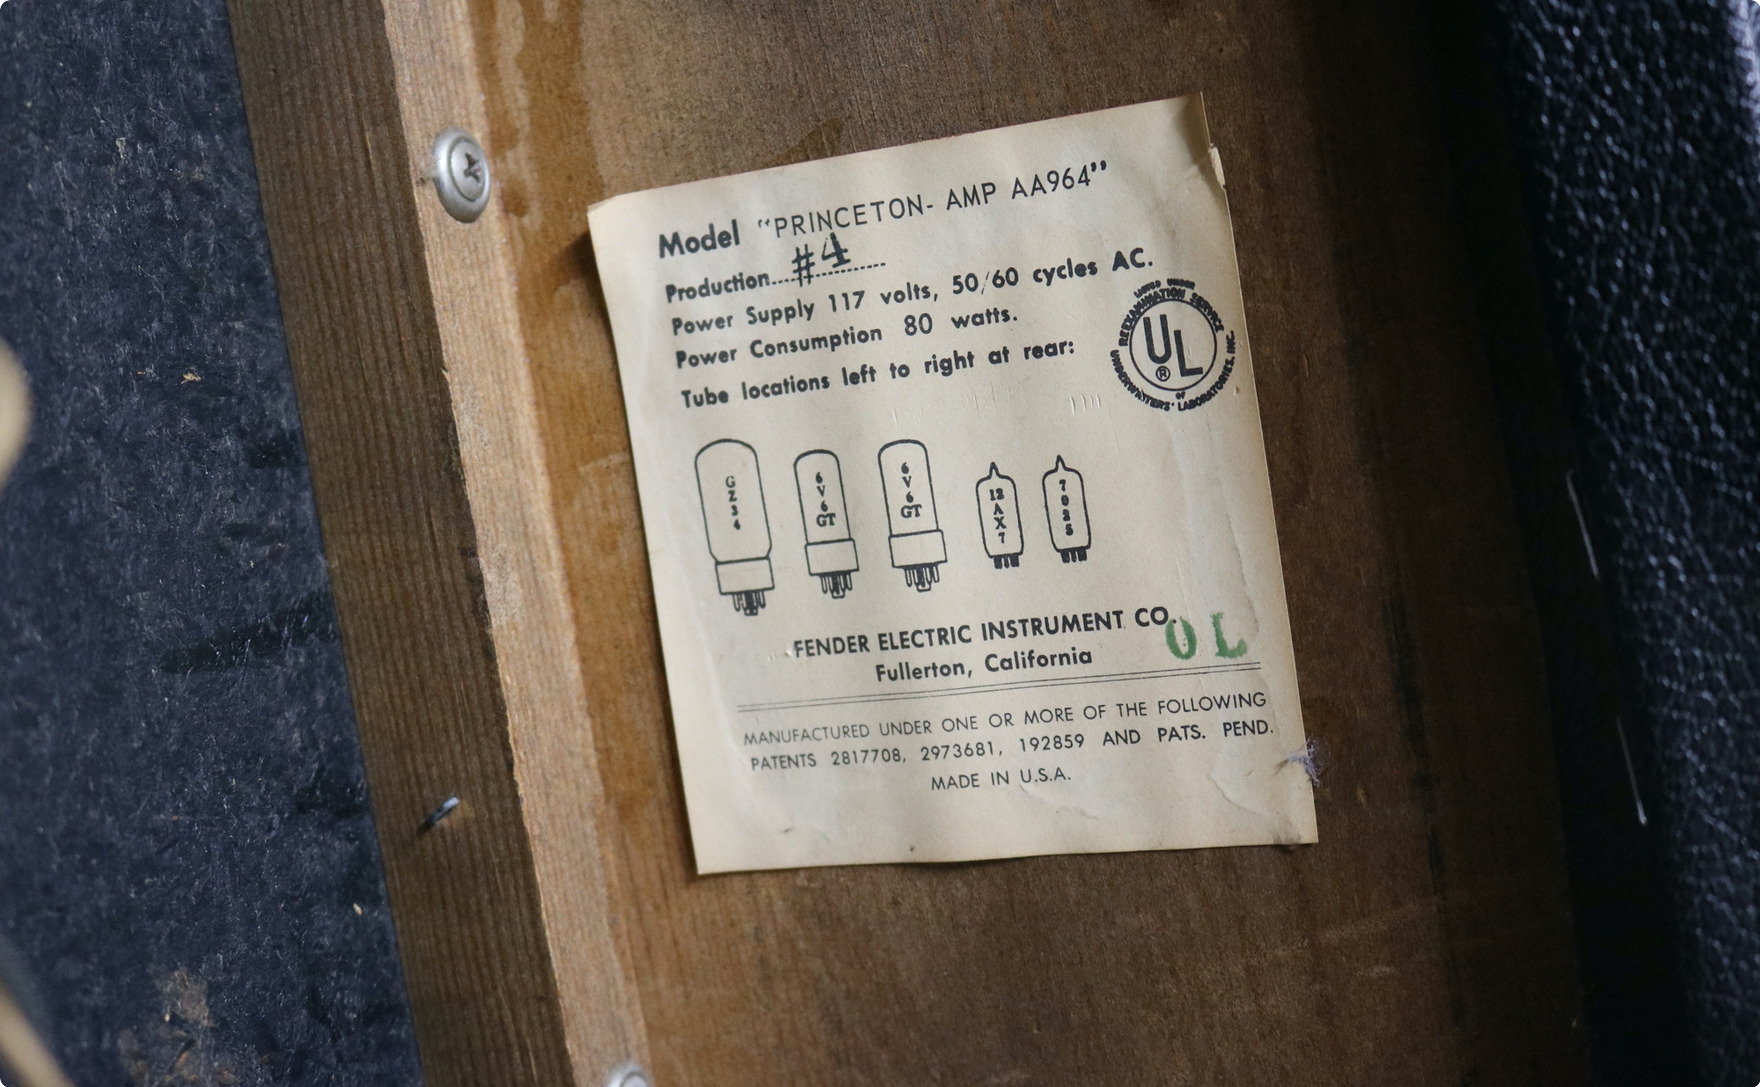 Model “PRINCETON- AMP AA964”
Production....#4..............
Power Supply 117 volts, 50/60 cycles AC.
Power Consumption 80 watts.
Tube locations left to right at rear:
LISTED UNDER
REEXAMINATION SERVICE
UL®
OF
UNDERWRITERS' LABORATORIES, INC.
GZ34
6V6GT
6V6GT
12AX7
7025
FENDER ELECTRIC INSTRUMENT CO.
OL
Fullerton, California
MANUFACTURED UNDER ONE OR MORE OF THE FOLLOWING
PATENTS 2817708, 2973681, 192859 AND PATS. PEND.
MADE IN U.S.A.